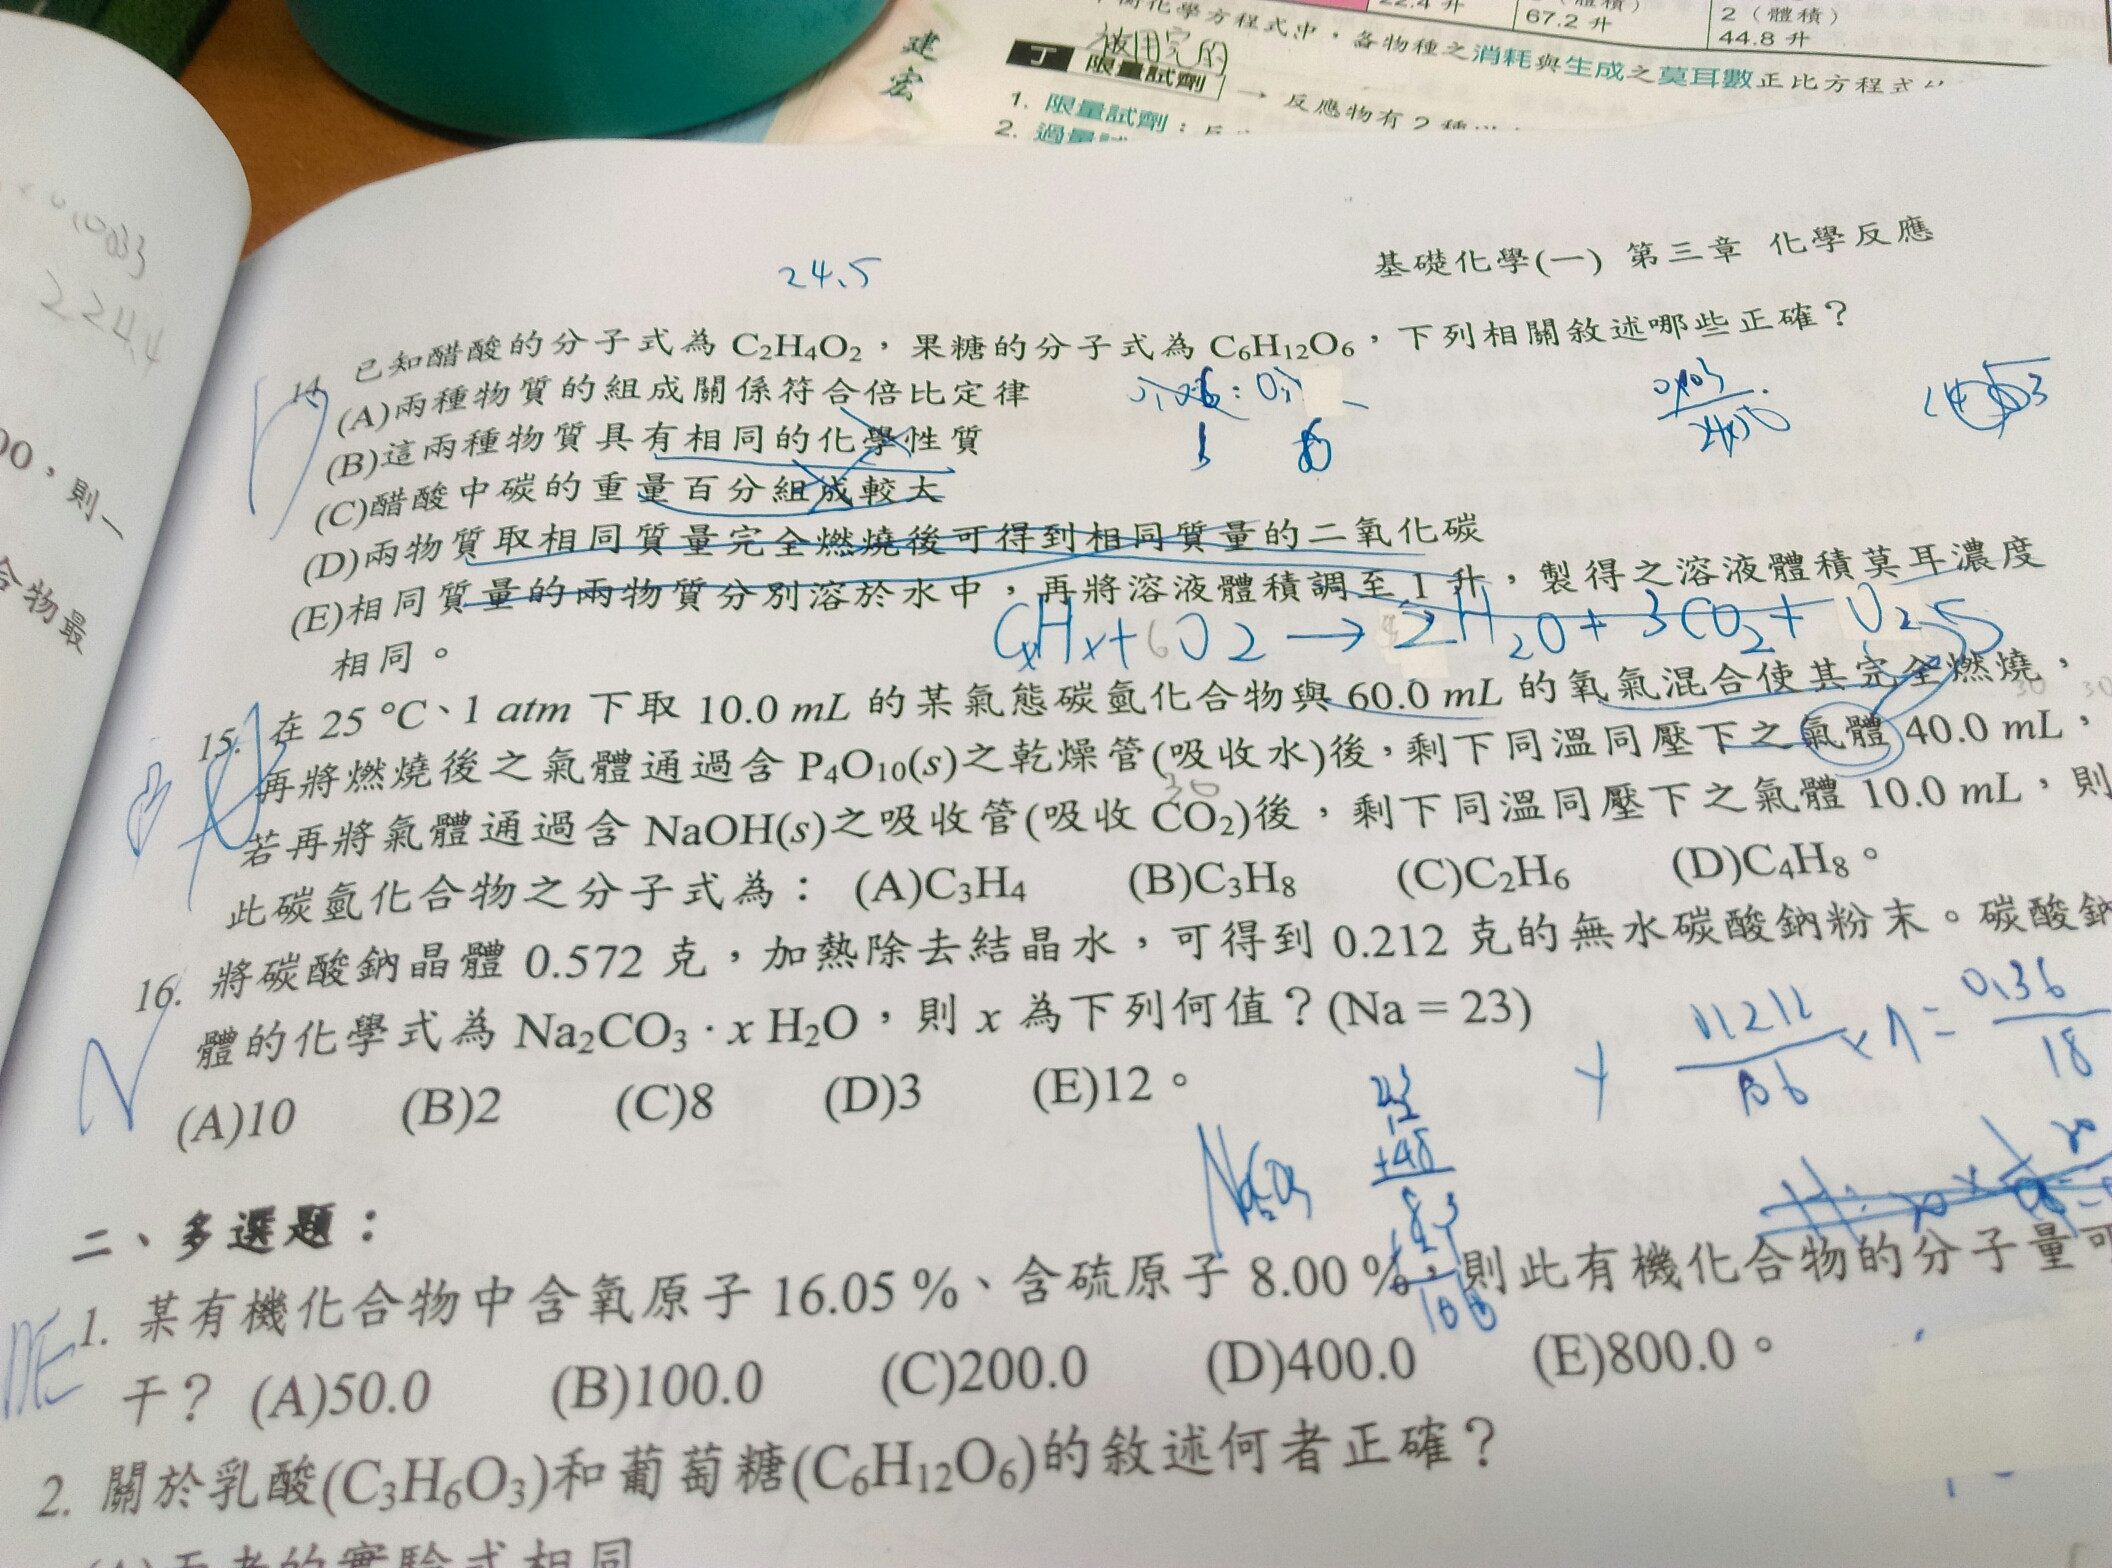 22.4 升
67.2 升
2（體積）
44.8 升
化學方程式中，各物種之消耗與生成之莫耳數正比方程式
被用完的
丁 限量試劑 → 反應物有 2 種
1. 限量試劑：
2. 過量試
建宏
0.033
224.4
00，則一
合物最
24.5
基礎化學(一) 第三章 化學反應
14. 已知醋酸的分子式為 C₂H₄O₂，果糖的分子式為 C₆H₁₂O₆，下列相關敘述哪些正確？
(A)兩種物質的組成關係符合倍比定律
(B)這兩種物質具有相同的化學性質
(C)醋酸中碳的重量百分組成較大
(D)兩物質取相同質量完全燃燒後可得到相同質量的二氧化碳
(E)相同質量的兩物質分別溶於水中，再將溶液體積調至 1 升，製得之溶液體積莫耳濃度
相同。
CxHx+6O2→2H2O+3CO2+O2
15. 在 25 °C、1 atm 下取 10.0 mL 的某氣態碳氫化合物與 60.0 mL 的氧氣混合使其完全燃燒，
再將燃燒後之氣體通過含 P₄O₁₀(s)之乾燥管(吸收水)後，剩下同溫同壓下之氣體 40.0 mL，
30
若再將氣體通過含 NaOH(s)之吸收管(吸收 CO₂)後，剩下同溫同壓下之氣體 10.0 mL，則
此碳氫化合物之分子式為： (A)C₃H₄ (B)C₃H₈ (C)C₂H₆ (D)C₄H₈。
16. 將碳酸鈉晶體 0.572 克，加熱除去結晶水，可得到 0.212 克的無水碳酸鈉粉末。碳酸鈉
體的化學式為 Na₂CO₃．x H₂O，則 x 為下列何值？(Na = 23)
0.212/106 × n = 0.36/18
(A)10 (B)2 (C)8 (D)3 (E)12。
23
12
+48
83
106
二、多選題：
1. 某有機化合物中含氧原子 16.05 %、含硫原子 8.00 %，則此有機化合物的分子量可
DE
干？ (A)50.0 (B)100.0 (C)200.0 (D)400.0 (E)800.0。
2. 關於乳酸(C₃H₆O₃)和葡萄糖(C₆H₁₂O₆)的敘述何者正確？
(A)兩者的實驗式相同